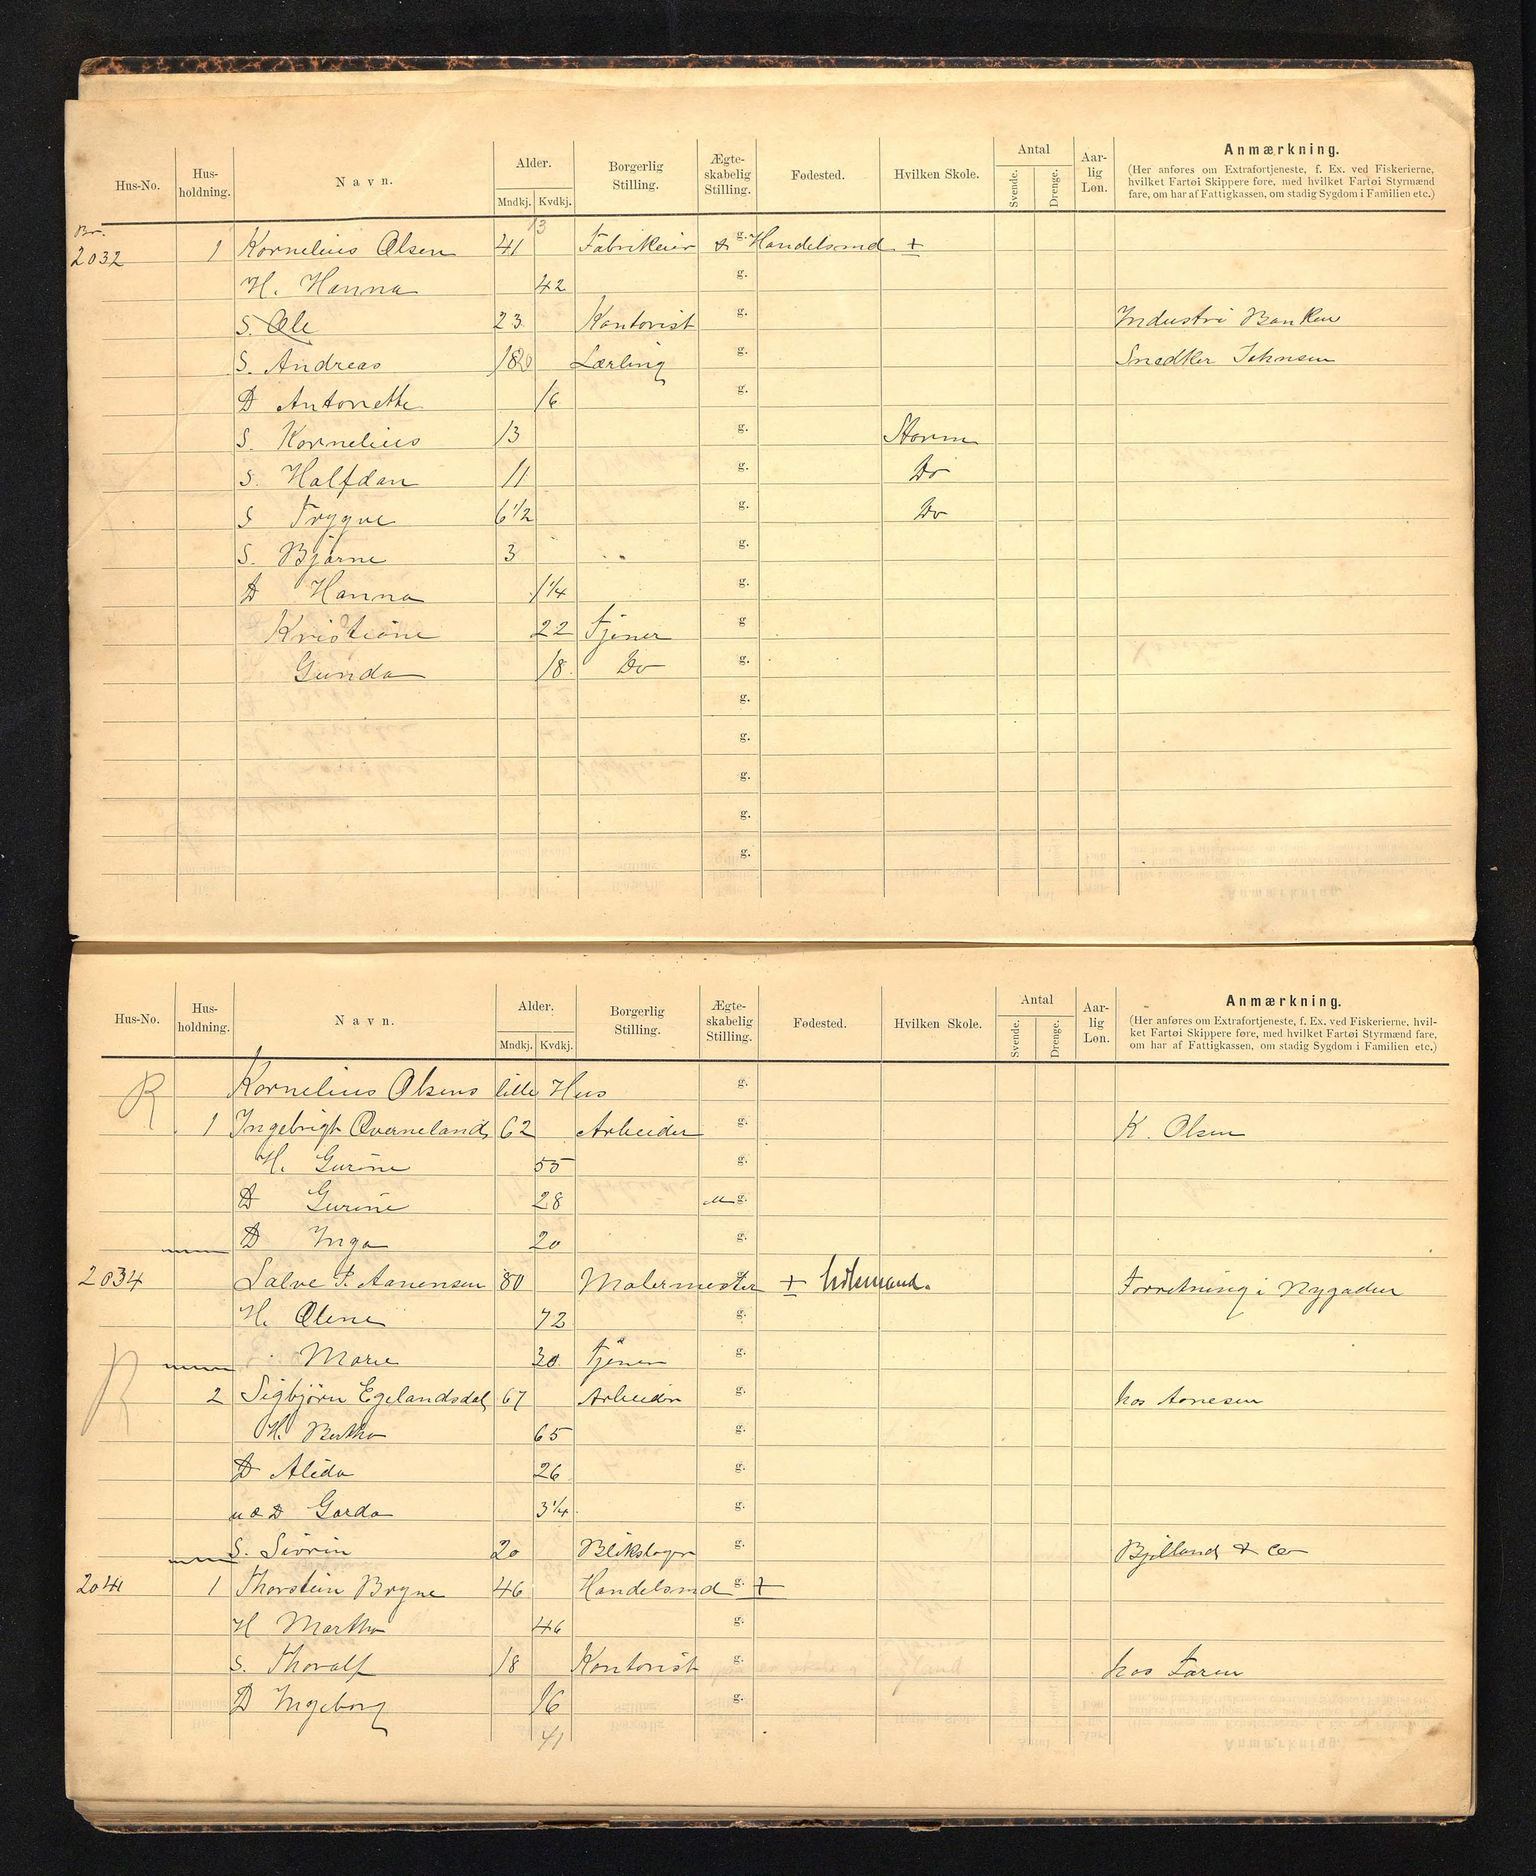 Hus-No. Hus-holdning. Navn. Alder. Mndkj. Kvdkj. Borgerlig Stilling. Ægte-skabelig Stilling. Fødested. Hvilken Skole. Antal Svende. Drenge. Aar-lig Løn. Anmærkning.
(Her anføres om Extrafortjeneste, f. Ex. ved Fiskerierne, hvilket Fartøi Skippere føre, med hvilket Fartøi Styrmænd fare, om har af Fattigkassen, om stadig Sygdom i Familien etc.)
13
Br.
2032 1 Kornelius Olsen 41 Fabrikeier & g. Handelsmd +
H. Hanna 42 g.
S. Ole 23 Kontorist g. Industri Banken
S. Andreas 18 20 Lærling g. Snedker Johnsen
D Antonette 16 g.
S. Kornelius 13 g. Storm
S. Halfdan 11 g. Do
S Trygve 6 1/2 g. Do
S. Bjarne 3 g.
D Hanna 1 1/4 g.
Kristine 22 Tjener g
Gunda 18 Do g.
g.
g.
g.
g.
g.
Hus-No. Hus-holdning. Navn. Alder. Mndkj. Kvdkj. Borgerlig Stilling. Ægte-skabelig Stilling. Fødested. Hvilken Skole. Antal Svende. Drenge. Aar-lig Løn. Anmærkning.
(Her anføres om Extrafortjeneste, f. Ex. ved Fiskerierne, hvil-ket Fartøi Skippere føre, med hvilket Fartøi Styrmænd fare, om har af Fattigkassen, om stadig Sygdom i Familien etc.)
R Kornelius Olsens lille Hus g.
1 Ingebrigt Øverneland 62 Arbeider g. K. Olsen
H. Gurine 55 g.
D Gurine 28 u g.
D Inga 20 g.
2034 Salve P. Aanensen 80 Malermester + g.
Forretning i Nygaden
H. Olene 72 g.
R Marie 30 Tjener g.
2 Sigbjørn Egelandsdal 67 Arbeider g. hos Aanesen
H. Bertha 65 g.
D Alida 26 g.
u æ D Garda 3 1/4 g.
S. Sivrin 20 Blikslager g. Bjelland & Co
2041 1 Thorstein Bryne 46 Handelsmd g. +
H Martha 46 g.
S. Thoralf 18 Kontorist g. hos Faren
D Ingeborg 16 g.
41